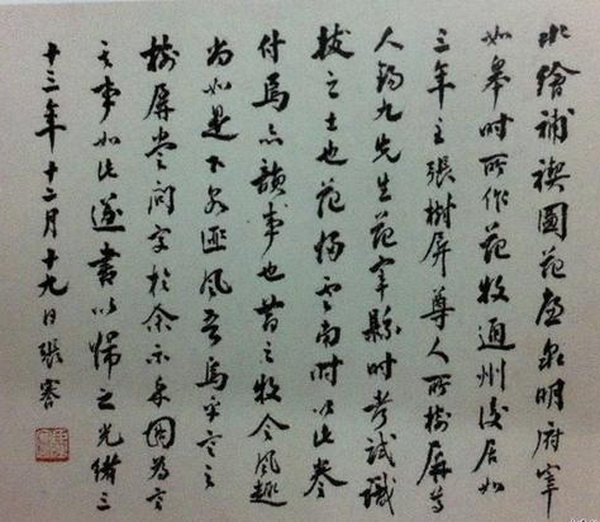 水繪補禊圖范泉明府宰
如皋時所作范牧通州後居如
三年主張樹屏尊人所樹屏尊
人錫九先生范宰縣時考試識
拔之士也范歸雲南時以此卷
付焉亦韻事也昔之牧令風趣
尚如是下泉匪風吾烏乎言之
樹屏嘗問字於余示來因為言
其事如此遂書以歸之光緒三
十三年十二月十九日張謇